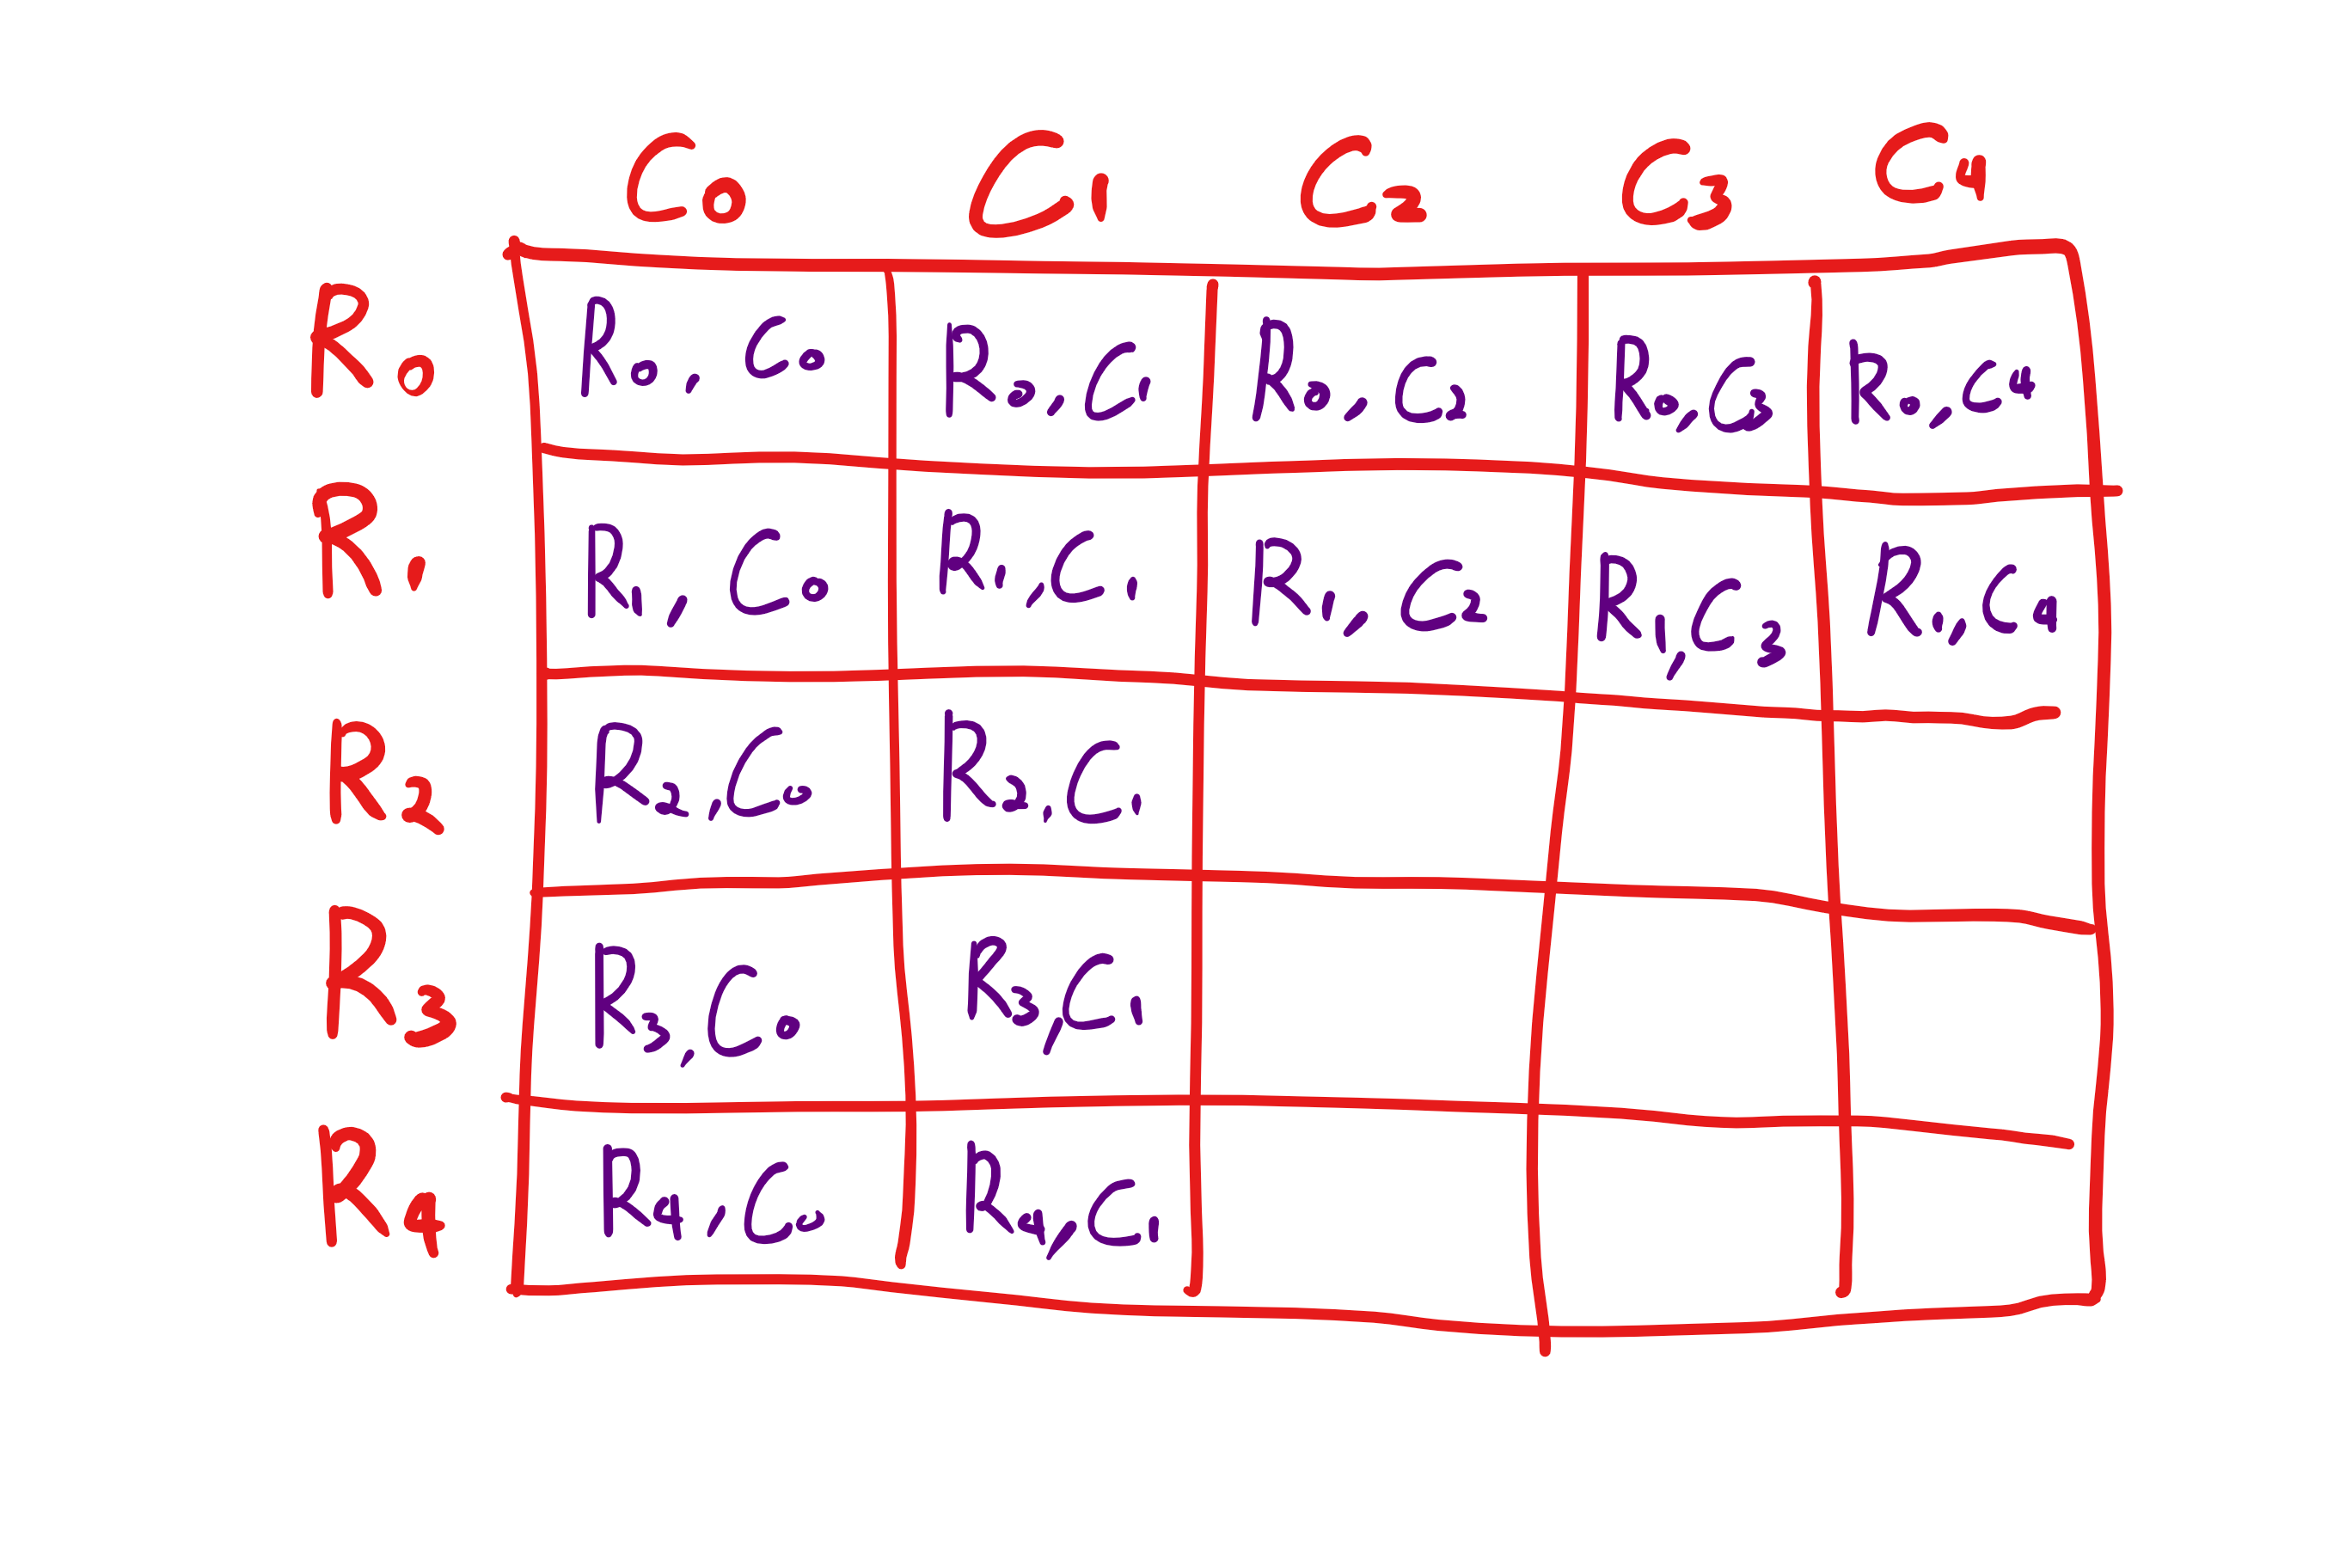 C0 C1 C2 C3 C4
R0 R0, C0 R0, C1 R0, C2 R0, C3 R0, C4
R1 R1, C0 R1, C1 R1, C2 R1, C3 R1, C4
R2 R2, C0 R2, C1
R3 R3, C0 R3, C1
R4 R4, C0 R4, C1